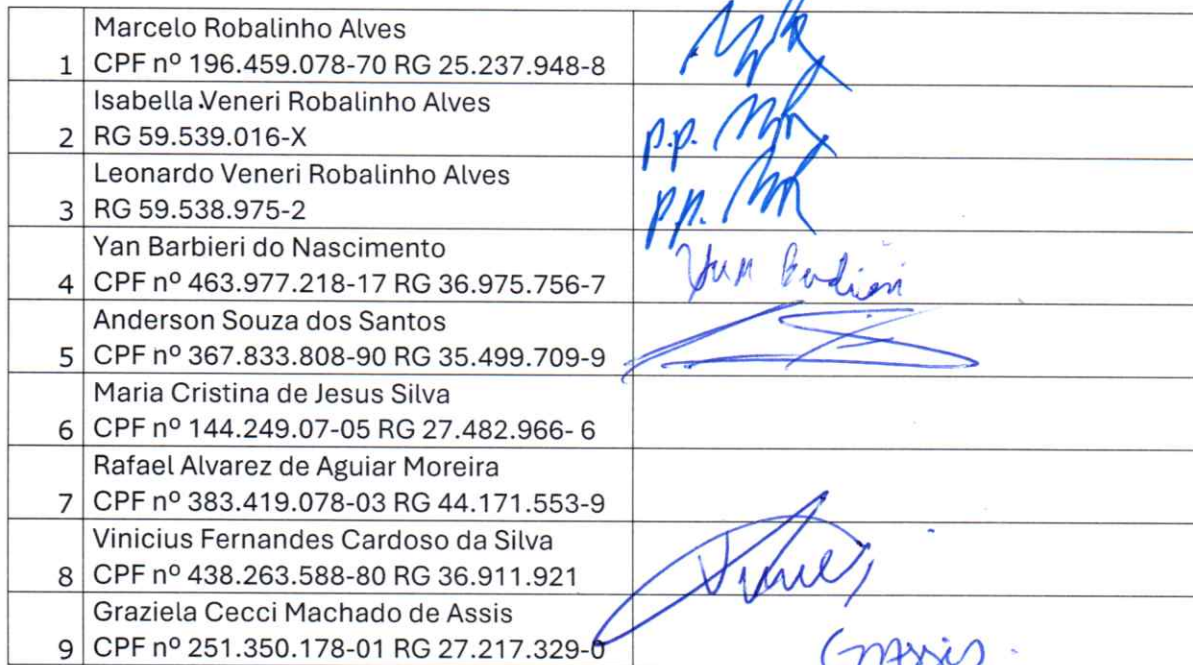 Marcelo Robalinho Alves
1 CPF nº 196.459.078-70 RG 25.237.948-8
Isabella Veneri Robalinho Alves
2 RG 59.539.016-X
p.p.
Leonardo Veneri Robalinho Alves
3 RG 59.538.975-2
p.p.
Yan Barbieri do Nascimento
4 CPF nº 463.977.218-17 RG 36.975.756-7
Anderson Souza dos Santos
5 CPF nº 367.833.808-90 RG 35.499.709-9
Maria Cristina de Jesus Silva
6 CPF nº 144.249.07-05 RG 27.482.966- 6
Rafael Alvarez de Aguiar Moreira
7 CPF nº 383.419.078-03 RG 44.171.553-9
Vinicius Fernandes Cardoso da Silva
8 CPF nº 438.263.588-80 RG 36.911.921
Graziela Cecci Machado de Assis
9 CPF nº 251.350.178-01 RG 27.217.329-0